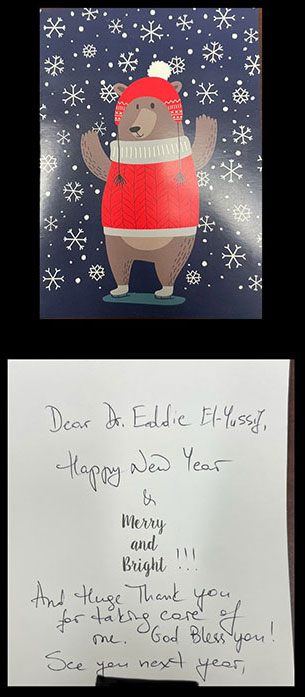 Dear Dr. Eddie El-Yussif,
Happy New Year
&
Merry
and
Bright !!!
And Huge Thank you
for taking care of
me. God Bless you!
See you next year,